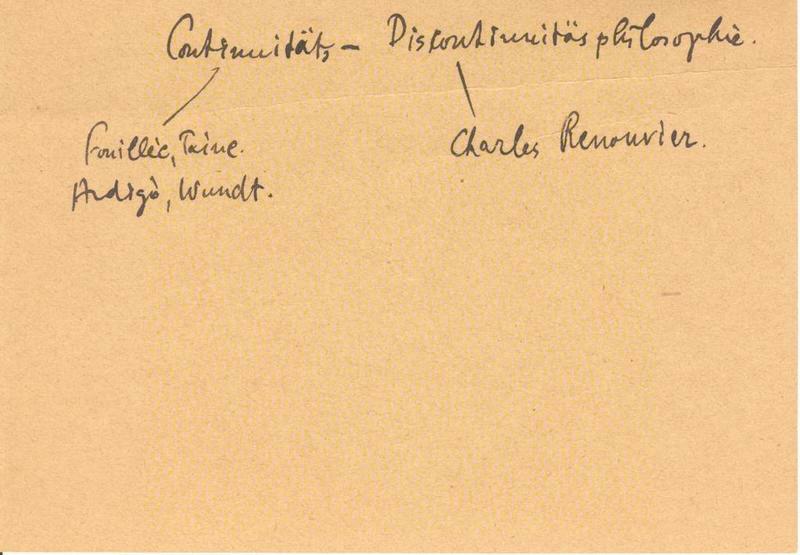 Continuitäts – Discontinuitäsphilosophie.
Fouillée, Taine.
Ardigò, Wundt.
Charles Renouvier.